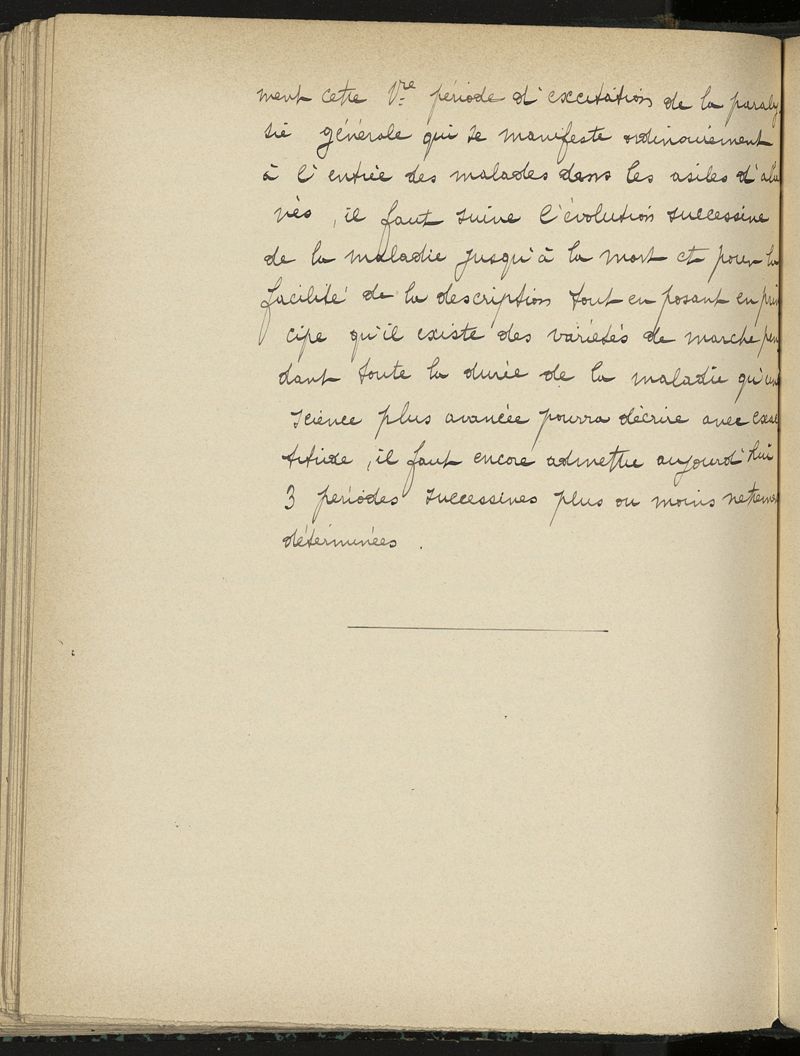 ment cette 1re période d'excitation de la paraly
sie générale qui se manifeste ordinairement
à l'entrée des malades dans les asiles d'alié
nés, il faut suivre l'évolution successive
de la maladie jusqu'à la mort et pour la
facilité de la description tout en posant en prin
cipe qu'il existe des variétés de marche pen
dant toute la durée de la maladie qu'une
science plus avancée pourra décrire avec exac
titude, il faut encore admettre aujourd'hui
3 périodes successives plus ou moins nettement
déterminées.